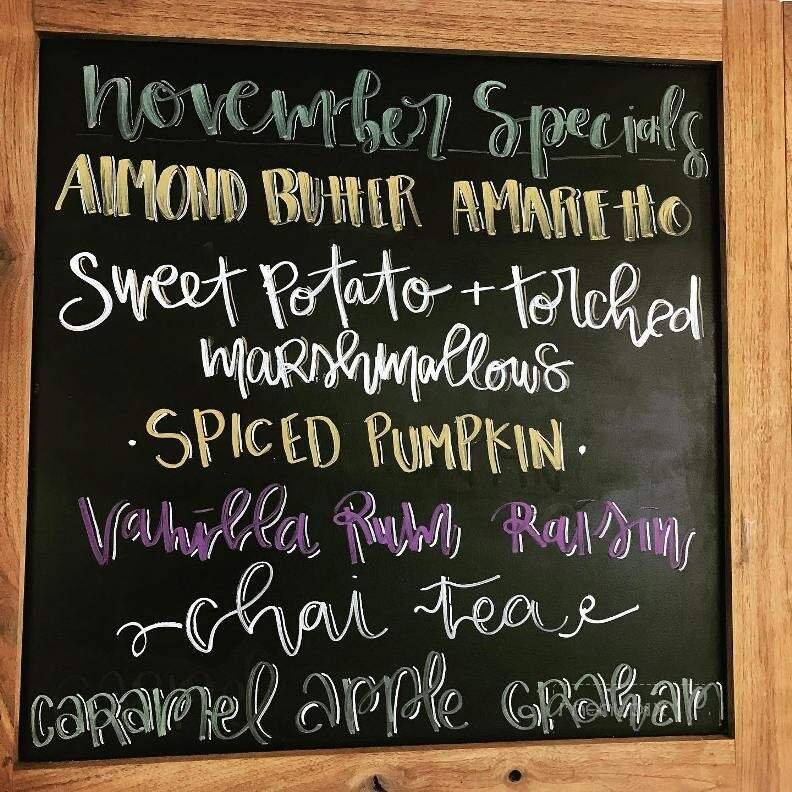 november Specials
ALMOND BUTTER AMARETTO
Sweet Potato + torched
marshmallows
· SPICED PUMPKIN ·
Vanilla Rum Raisin
chai tea
caramel apple graham